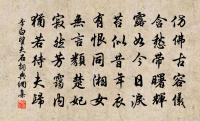 仿佛古容儀
含愁帶曙輝
露如今日淚
苔似昔年衣
有恨同湘女
無言類楚妃
寂然芳靄內
猶若待夫歸
李白望夫石詞典網書